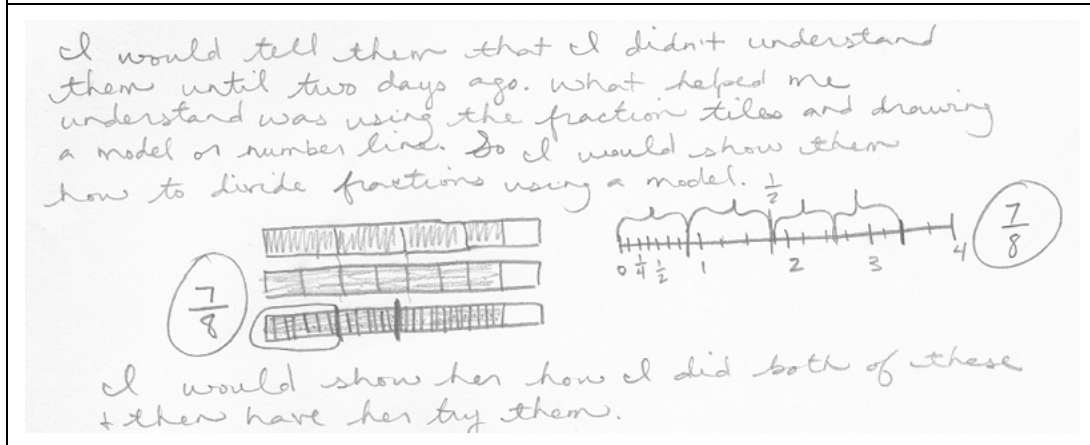 I would tell them that I didn't understand
them until two days ago. what helped me
understand was using the fraction tiles and drawing
a model or number line. So I would show them
how to divide fractions using a model.
1/2
7/8
0 1/4 1/2 1 2 3 4
7/8
I would show her how I did both of these
+ then have her try them.